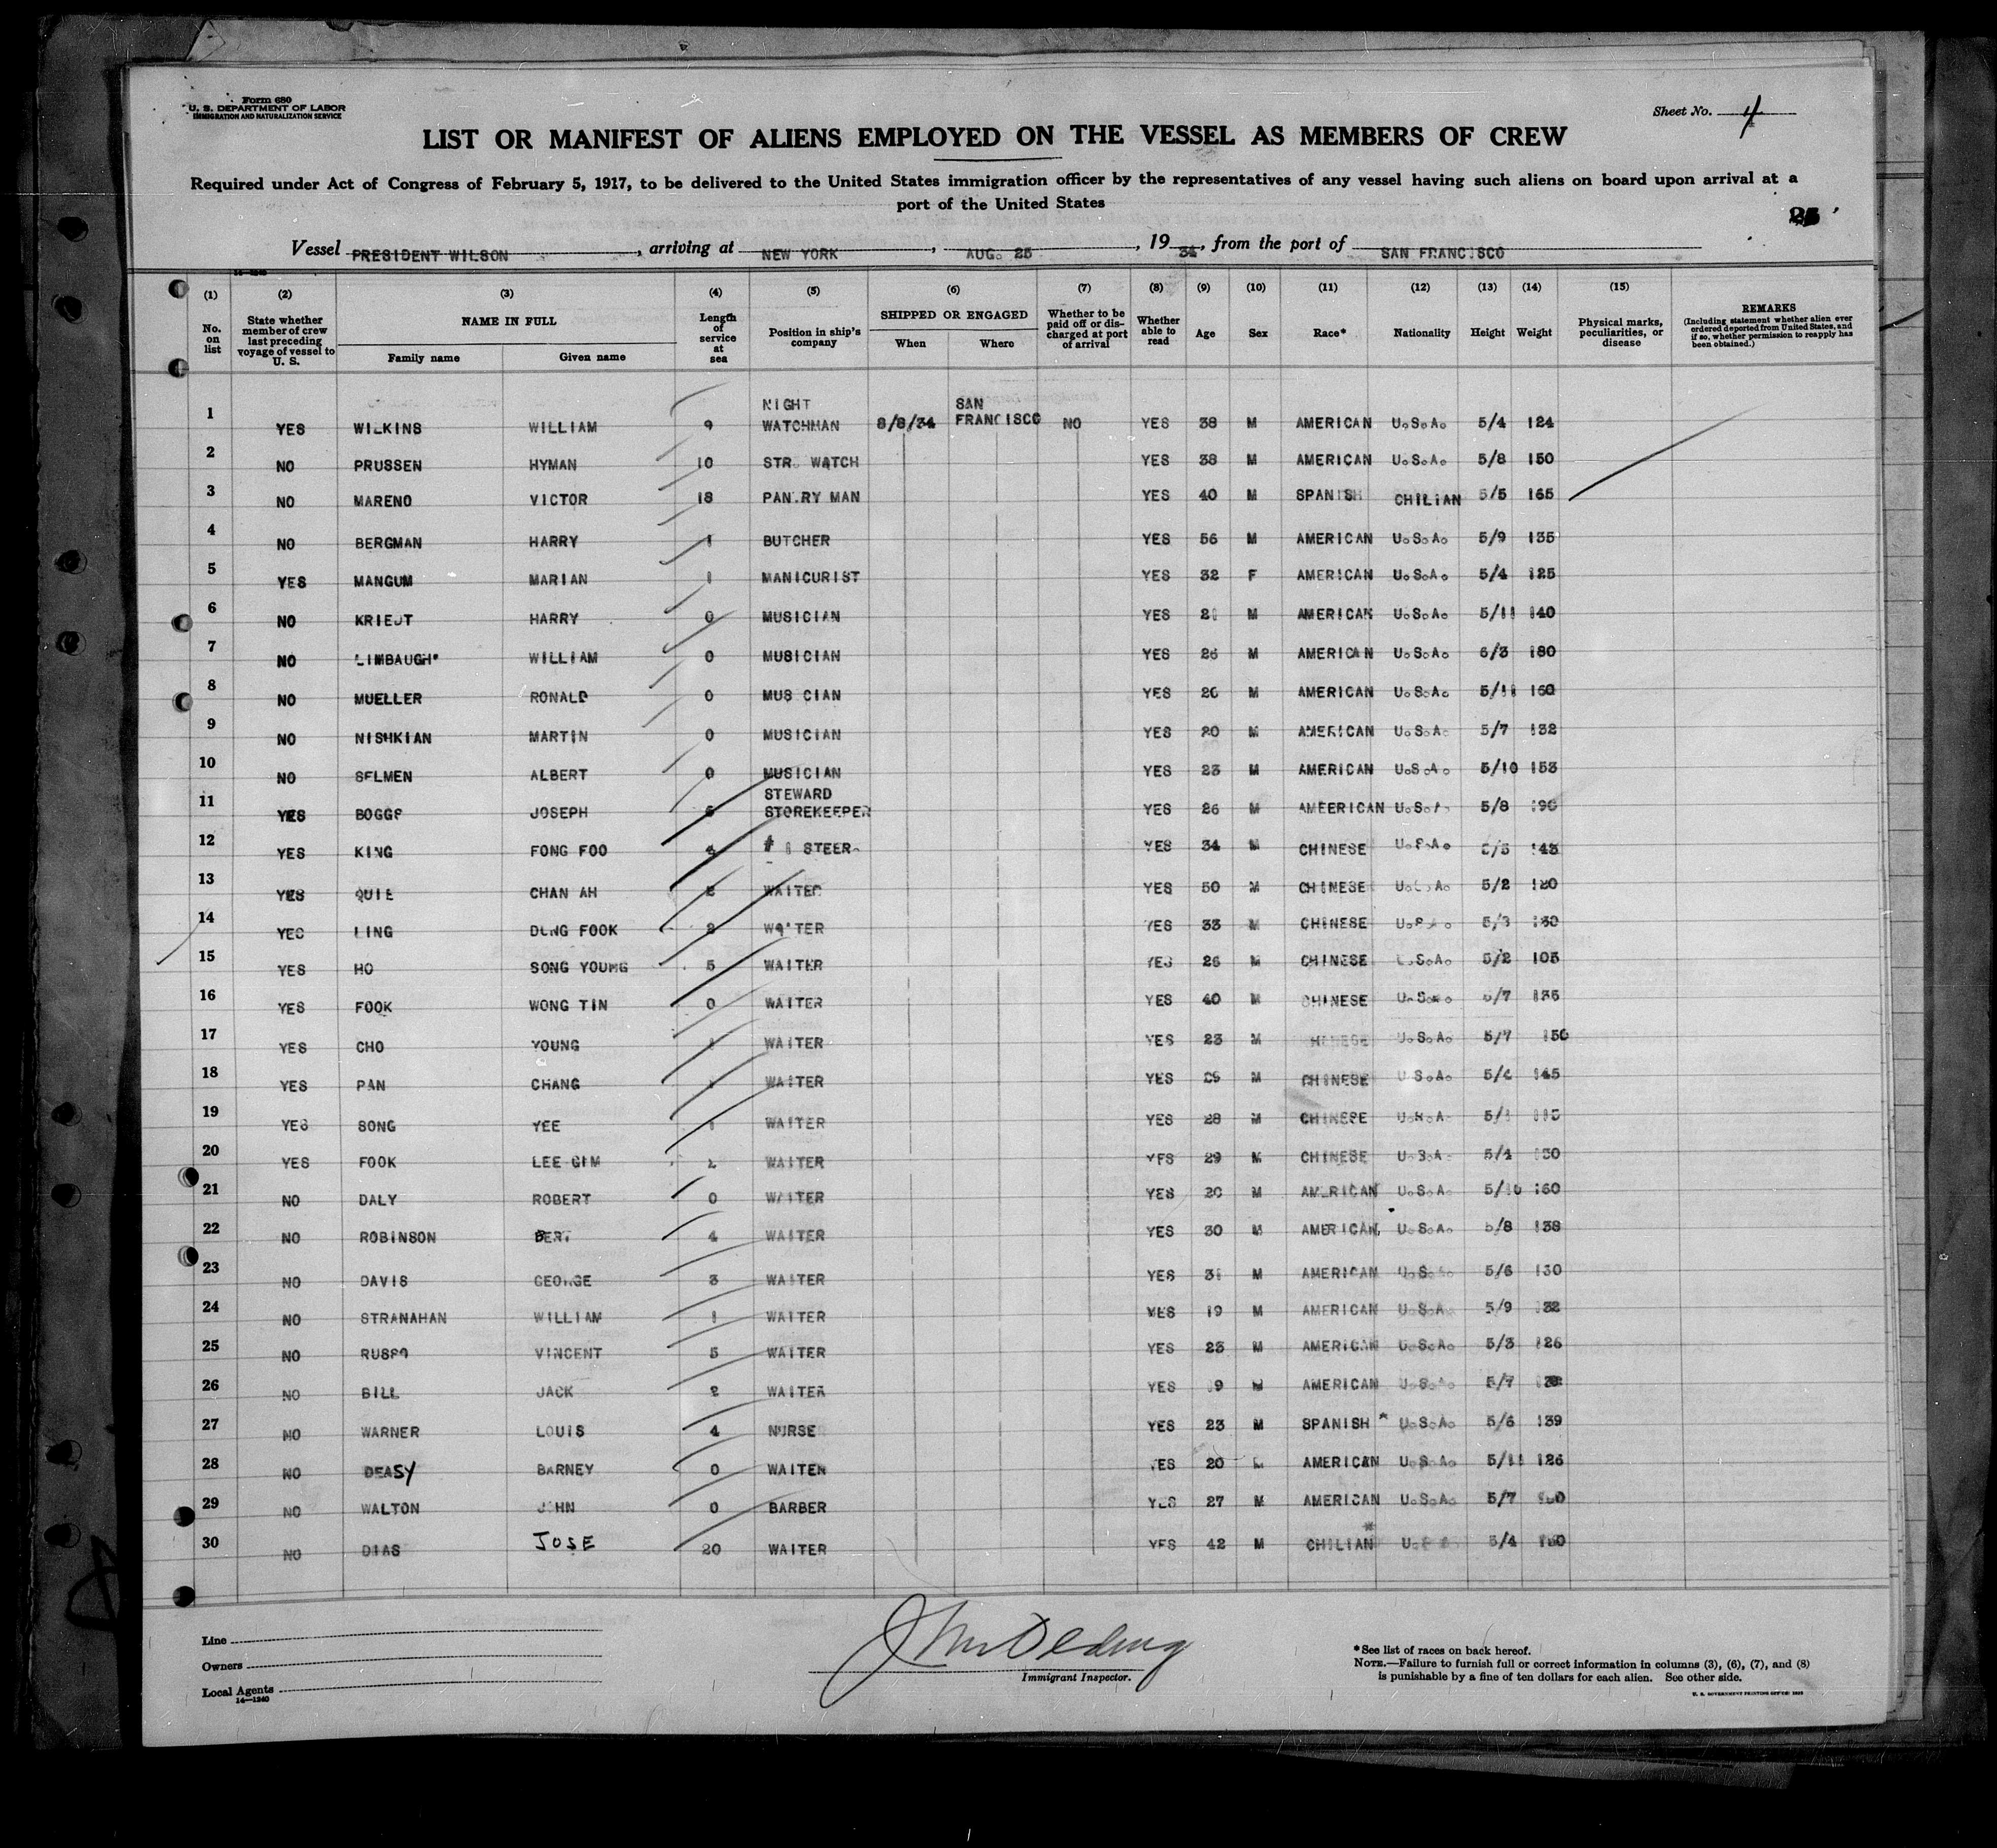 Form 680
U. S. DEPARTMENT OF LABOR
IMMIGRATION AND NATURALIZATION SERVICE
Sheet No. 4
LIST OR MANIFEST OF ALIENS EMPLOYED ON THE VESSEL AS MEMBERS OF CREW
Required under Act of Congress of February 5, 1917, to be delivered to the United States immigration officer by the representatives of any vessel having such aliens on board upon arrival at a
port of the United States
Vessel PRESIDENT WILSON, arriving at NEW YORK, AUG. 25, 1934, from the port of SAN FRANCISCO
(1) No. on list (2) State whether member of crew last preceding voyage of vessel to U. S. (3) NAME IN FULL Family name Given name (4) Length of service at sea (5) Position in ship's company (6) SHIPPED OR ENGAGED When Where (7) Whether to be paid off or discharged at port of arrival (8) Whether able to read (9) Age (10) Sex (11) Race* (12) Nationality (13) Height (14) Weight (15) Physical marks, peculiarities, or disease REMARKS (Including statement whether alien ever ordered deported from United States, and if so, whether permission to reapply has been obtained.)
1 YES WILKINS WILLIAM 9 NIGHT WATCHMAN 8/8/34 SAN FRANCISCO NO YES 38 M AMERICAN U.S.A. 5/4 124
2 NO PRUSSEN HYMAN 10 STR. WATCH YES 38 M AMERICAN U.S.A. 5/8 150
3 NO MARENO VICTOR 18 PANTRY MAN YES 40 M SPANISH CHILIAN 5/5 165
4 NO BERGMAN HARRY 1 BUTCHER YES 56 M AMERICAN U.S.A. 5/9 135
5 YES MANGUM MARIAN 1 MANICURIST YES 32 F AMERICAN U.S.A. 5/4 125
6 NO KRIEDT HARRY 0 MUSICIAN YES 21 M AMERICAN U.S.A. 5/11 140
7 NO LIMBAUGH WILLIAM 0 MUSICIAN YES 26 M AMERICAN U.S.A. 6/3 180
8 NO MUELLER RONALD 0 MUSICIAN YES 20 M AMERICAN U.S.A. 5/11 160
9 NO NISHKIAN MARTIN 0 MUSICIAN YES 20 M AMERICAN U.S.A. 5/7 132
10 NO SELMEN ALBERT 0 MUSICIAN YES 23 M AMERICAN U.S.A. 5/10 153
11 YES BOGGS JOSEPH STEWARD STOREKEEPER YES 26 M AMEERICAN U.S.A. 5/8 190
12 YES KING FONG FOO # 1 STEER. YES 34 M CHINESE U.S.A. 5/5 143
13 YES QUIE CHAN AH WAITER YES 50 M CHINESE U.S.A. 5/2 120
14 YES LING DUNG FOOK 2 WAITER YES 33 M CHINESE U.S.A. 5/3 130
15 YES HO SONG YOUNG 5 WAITER YES 26 M CHINESE U.S.A. 5/2 105
16 YES FOOK WONG TIN 0 WAITER YES 40 M CHINESE U.S.A. 5/7 135
17 YES CHO YOUNG WAITER YES 23 M CHINESE U.S.A. 5/7 150
18 YES PAN CHANG WAITER YES 29 M CHINESE U.S.A. 5/4 145
19 YES SONG YEE 1 WAITER YES 28 M CHINESE U.S.A.
20 YES FOOK LEE GIM 2 WAITER YES 29 M CHINESE U.S.A. 5/4 130
21 NO DALY ROBERT 0 WAITER YES 20 M AMERICAN U.S.A. 5/10 160
22 NO ROBINSON BERT 4 WAITER YES 30 M AMERICAN U.S.A. 5/8 138
23 NO DAVIS GEORGE 3 WAITER YES 31 M AMERICAN U.S.A. 5/6 130
24 NO STRANAHAN WILLIAM 1 WAITER YES 19 M AMERICAN U.S.A. 5/9 132
25 NO RUSSO VINCENT 5 WAITER YES 23 M AMERICAN U.S.A. 5/3 126
26 NO BILL JACK 2 WAITER YES 19 M AMERICAN U.S.A. 5/7
27 NO WARNER LOUIS 4 NURSE YES 23 M SPANISH * U.S.A. 5/6 139
28 NO DEASY BARNEY 0 WAITER YES 20 AMERICAN U.S.A. 5/11 126
29 NO WALTON JOHN 0 BARBER YES 27 M AMERICAN U.S.A. 5/7
30 NO DIAS JOSE 20 WAITER YES 42 M CHILIAN U.S.A. 5/4
Line
Owners
Local Agents
14—1240
Immigrant Inspector.
*See list of races on back hereof.
NOTE.—Failure to furnish full or correct information in columns (3), (6), (7), and (8)
is punishable by a fine of ten dollars for each alien. See other side.